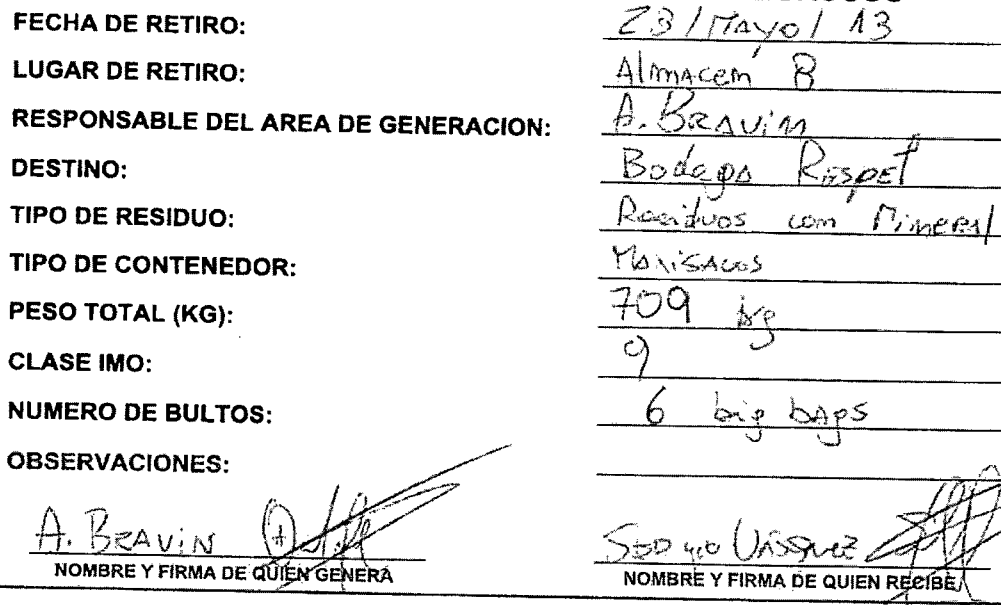 FECHA DE RETIRO: 23/Mayo/13
LUGAR DE RETIRO: Almacem B
RESPONSABLE DEL AREA DE GENERACION: A. BRAVIN
DESTINO: Bodega Respel
TIPO DE RESIDUO: Residuos com Mineral
TIPO DE CONTENEDOR: MAXISACOS
PESO TOTAL (KG): 709 kg
CLASE IMO: 9
NUMERO DE BULTOS: 6 big bags
OBSERVACIONES:
A. BRAVIN VÁSQUEZ
NOMBRE Y FIRMA DE QUIEN GENERA NOMBRE Y FIRMA DE QUIEN RECIBE